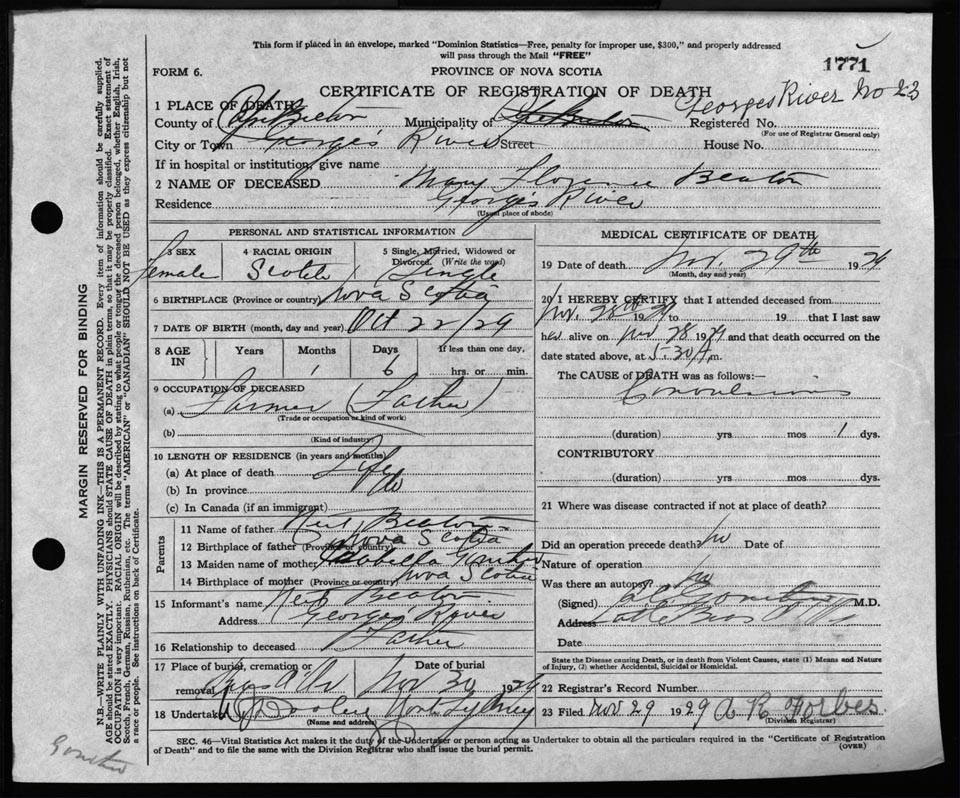 This form if placed in an envelope, marked "Dominion Statistics—Free, penalty for improper use, $300," and properly addressed
will pass through the Mail "FREE"
1771
FORM 6.
PROVINCE OF NOVA SCOTIA
CERTIFICATE OF REGISTRATION OF DEATH
Georges River No 23
1 PLACE OF DEATH
County of Cape Breton Municipality of Cape Breton Registered No.
(For use of Registrar General only)
City or Town Georges River Street House No.
If in hospital or institution, give name
2 NAME OF DECEASED Mary Florence Beaton
Residence Georges River
(Usual place of abode)
PERSONAL AND STATISTICAL INFORMATION
3 SEX 4 RACIAL ORIGIN 5 Single, Married, Widowed or
Divorced. (Write the word)
Female Scotch Single
6 BIRTHPLACE (Province or country) Nova Scotia
7 DATE OF BIRTH (month, day and year) Oct 22/29
8 AGE IN Years Months Days If less than one day,
1 6 hrs. or min.
9 OCCUPATION OF DECEASED
(a) Farmer (Father)
(Trade or occupation or kind of work)
(b)
(Kind of industry)
10 LENGTH OF RESIDENCE (in years and months)
(a) At place of death Life
(b) In province do
(c) In Canada (if an immigrant)
Parents
11 Name of father Neil Beaton
12 Birthplace of father (Province or country) Nova Scotia
13 Maiden name of mother
14 Birthplace of mother (Province or country) Nova Scotia
15 Informant's name Neil Beaton
Address Georges River
16 Relationship to deceased Father
17 Place of burial, cremation or removal Date of burial
Nov 30 1929
18 Undertaker North Sydney
(Name and address)
MEDICAL CERTIFICATE OF DEATH
19 Date of death Nov. 29th 1929
(Month, day and year)
20 I HEREBY CERTIFY that I attended deceased from
Nov. 28th 1929 to 19 that I last saw
her alive on Nov 28 1929 and that death occurred on the
date stated above, at 5.30 A.m.
The CAUSE of DEATH was as follows:—
Convulsions
(duration) yrs mos 1 dys.
CONTRIBUTORY
(duration) yrs mos dys.
21 Where was disease contracted if not at place of death?
Did an operation precede death? No Date of
Nature of operation
Was there an autopsy? No
(Signed) M.D.
Address
Date
State the Disease causing Death, or in death from Violent Causes, state (1) Means and Nature
of Injury, (2) whether Accidental, Suicidal or Homicidal.
22 Registrar's Record Number
23 Filed Nov 29 1929 A R Forbes
(Division Registrar)
SEC. 46—Vital Statistics Act makes it the duty of the Undertaker or person acting as Undertaker to obtain all the particulars required in the "Certificate of Registration
of Death" and to file the same with the Division Registrar who shall issue the burial permit.
(OVER)
MARGIN RESERVED FOR BINDING
N.B.—WRITE PLAINLY WITH UNFADING INK—THIS IS A PERMANENT RECORD. Every item of information should be carefully supplied.
AGE should be stated EXACTLY. PHYSICIANS should STATE CAUSE OF DEATH in plain terms, so that it may be properly classified. Exact statement of
OCCUPATION is very important. RACIAL ORIGIN will be described by stating to what people or tongue the deceased person belonged, whether English, Irish,
Scotch, French, German, Russian, Ruthenian, etc. The terms "AMERICAN" or "CANADIAN" SHOULD NOT BE USED as they express citizenship but not
a race or people. See instructions on back of Certificate.